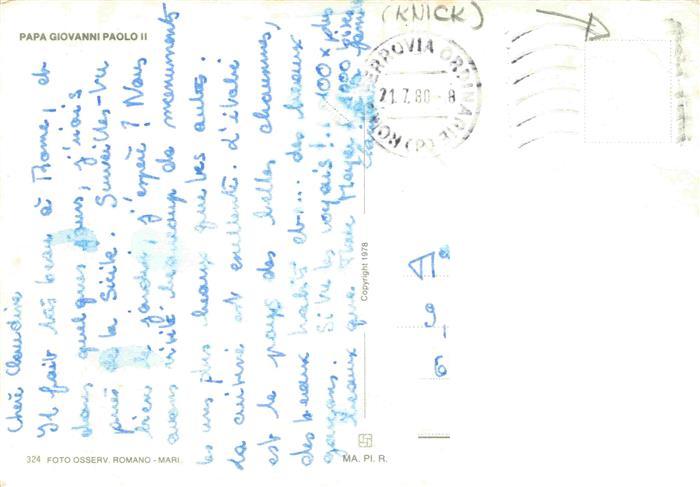 PAPA GIOVANNI PAOLO II
(KNICK)
FERROVIA ORDINARIE
21.7.80-8
ROMA
Chère Claudine
Il fait très beau à Rome, et
dans quelques jours, j'irais
près de la Sicile. Surveilles-tu
bien le jardin, j'espère? Nous
avons visité beaucoup de monuments
les uns plus beaux que les autres.
La cuisine est excellente. L'italie
est le pays des belles chaussures,
des beaux habits et... des beaux
garçons. Si tu les voyais!.. 100x plus
beaux que 1000 fois
Copyright 1978
324 FOTO OSSERV. ROMANO - MARI
MA. PI. R.